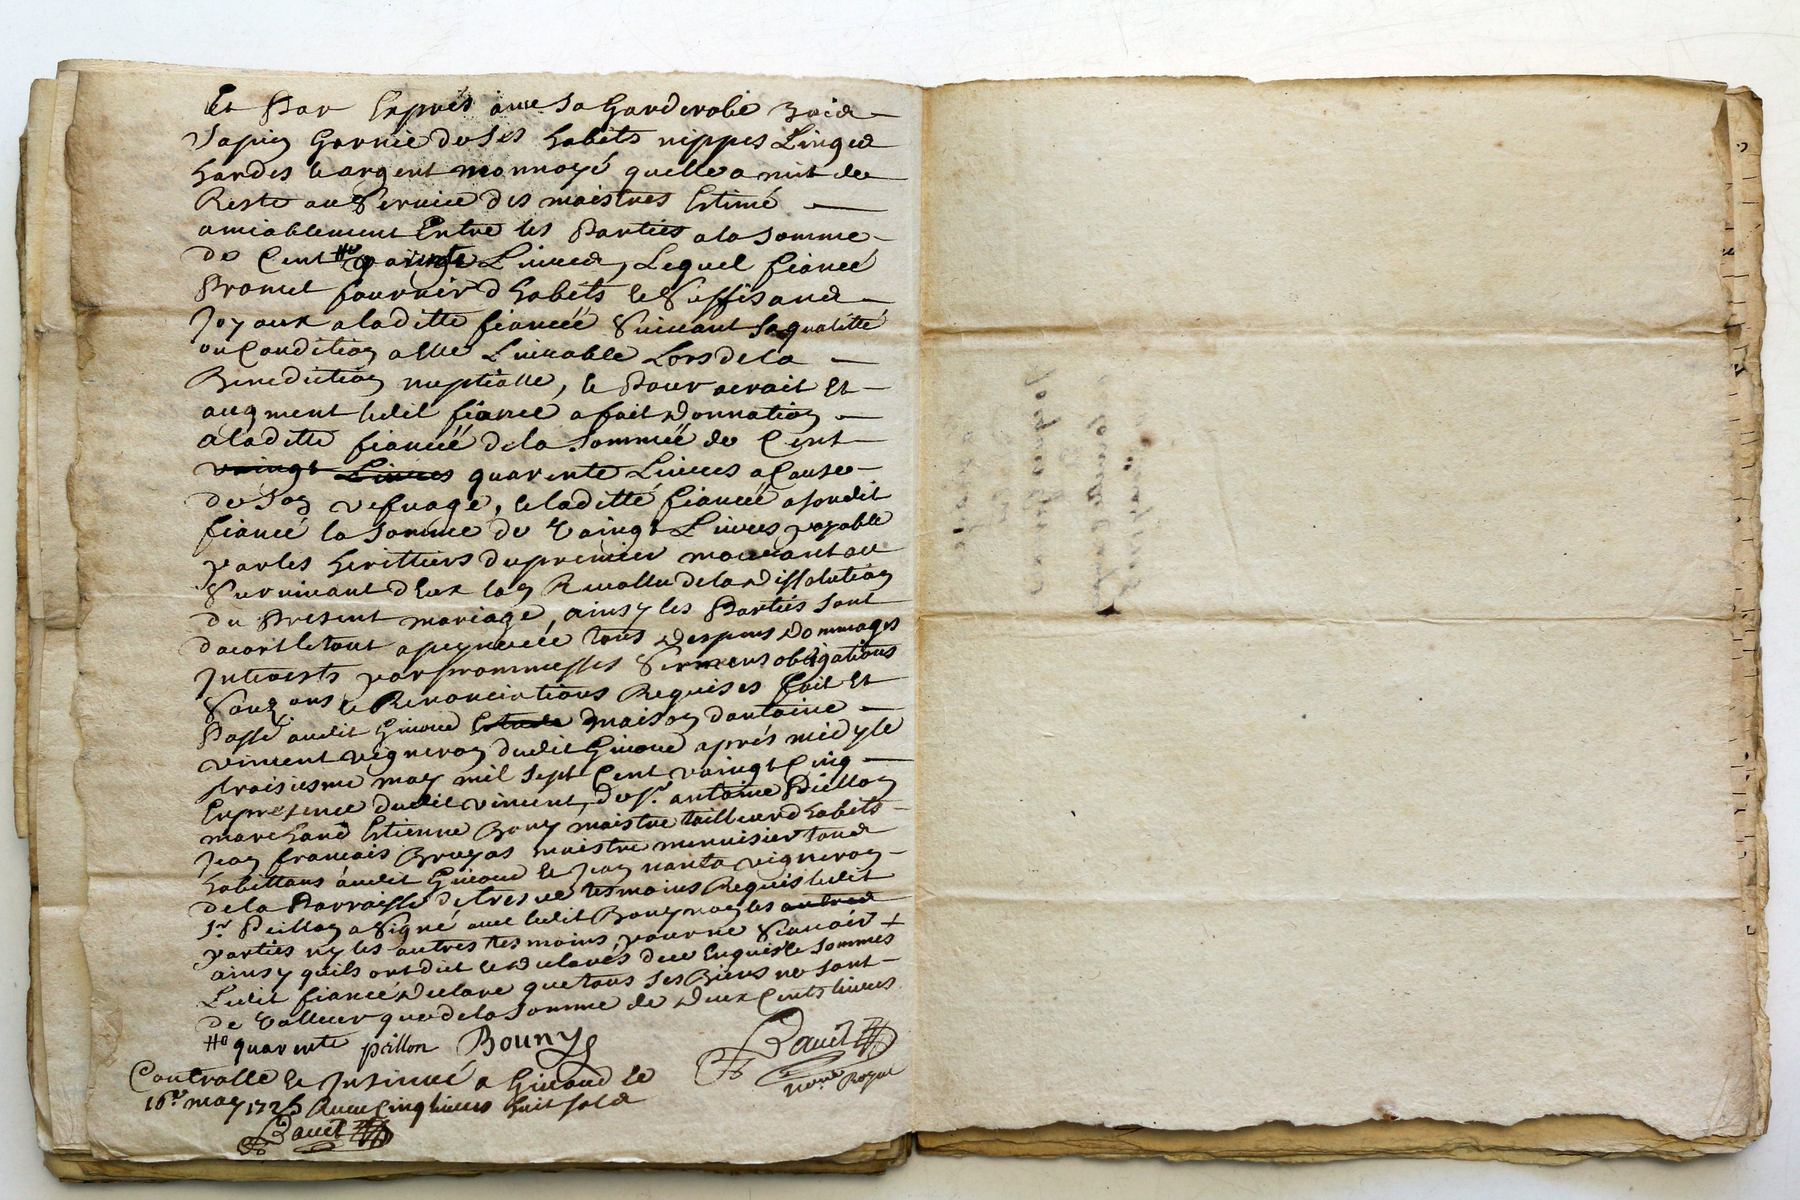 Et Par Exprés avec sa Garderobe boid
Sapin Garnie de ses habits nippes Linges
hardes et argent monnoyé quelle a mit de
Reste au Service des maistres Estimé
amiablement Entre les Parties a la somme
de Cent Livres, Lequel fiancé
Promet fournir d'habits et Suffisand
Joyaux a laditte fiancéé Suivant sa qualitté
ou Condition a Elle Livrable Lors de la
Benediction nuptialle, et Pour acroit Et
augment ledit fiancé a fait donnation
a laditte fiancéé de la Somméé de Cent
vaingt Livres quarente Livres a Cause
de Son vefuage, et laditté fiancéé a sondit
fiancé la somme de Vaingt Livres payable
par les herittiers du premier mourant au
Survivant d'Eux la dissolution
du Present mariage, ainsy les Partiés sont
dacort le tout a peyne de tous despens dommages
Interests par prommesses Sermens obligations
et Renonciations Requises fait Et
Passé audit Givord maison dantoine
vincent vigneron dudit Givord aprés midy le
troisiesme may mil sept Cent vaingt Cinq
En presence dudit vincent, de sr. antoine Peillon
marchand Estienne Bouny maistre tailleur d'habits
Jean francois Bruyas maistre menuisier toud
habittans audit Givord et Jean nanta vigneron
de la Parroisse de tesmoins Requis ledit
Sr Peillon a Signé avec ledit Bouny non les autres
parties ny les autres tesmoins, pour ne Scavoir +
ainsy quils ont dit et declarés Enquis et Sommés
Ledit fiancé declare que tous ses Biens ne sont
de Valleur que de la somme de deux Cents livres
quarente peillon Bouny
Davet
no.re Royal
Controlle et Insinué a Givord le
16e may 1725 Receu Cinq livres huit sold
Davet